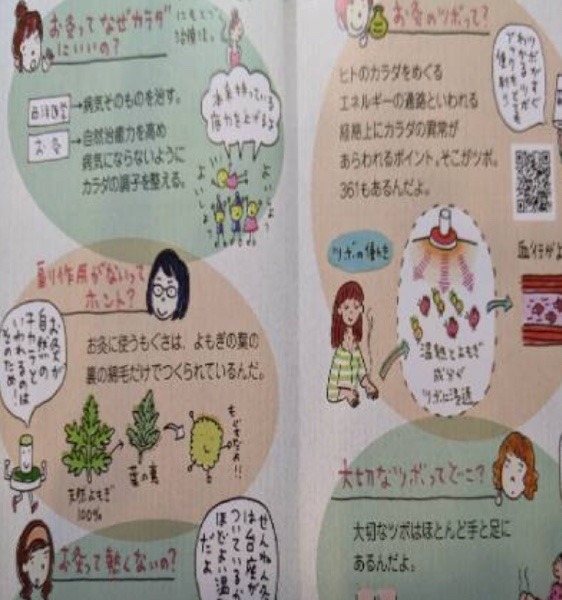 お灸ってなぜカラダ
にいいの?
にもどう
治療法。
西洋医学→病気そのものを治す。
お灸→自然治癒力を高め
病気にならないように
カラダの調子を整える。
本来持っている
底力を上げるよ
よいしょ
よいしょ
副作用がないって
ホント?
お灸が
自然の
チカラと
いわれるのは
そのため!
お灸に使うもぐさは、よもぎの葉の
裏の綿毛だけでつくられているんだ。
天然よもぎ
100%
葉の裏
もぐさだよ!!
お灸って熱くないの?
せんねん灸
は台座が
ついているか
ほどよい温
だよ
お灸のツボって?
ツボがすぐ
わかるツボ
ヒトのカラダをめぐる
エネルギーの通路といわれる
経絡上にカラダの異常が
あらわれるポイント。そこがツボ。
361もあるんだよ。
ツボの働き
温熱とよもぎ
成分が
ツボに浸透
血行がよ
大切なツボってどーこ?
大切なツボはほとんど手と足に
あるんだよ。